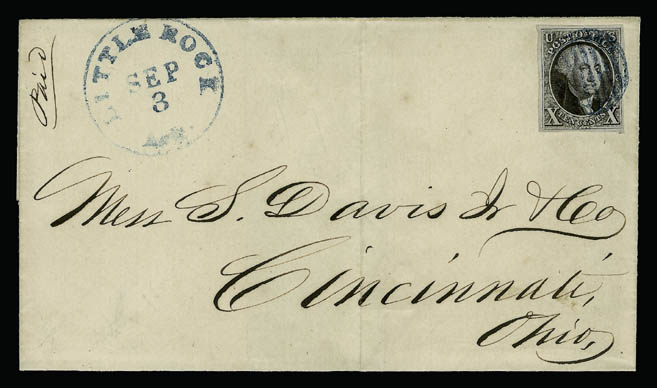 Paid
LITTLE ROCK
SEP
3
Ark
U S
POST OFFICE
X TEN CENTS X
Mess S. Davis Jr & Co
Cincinnati,
Ohio,